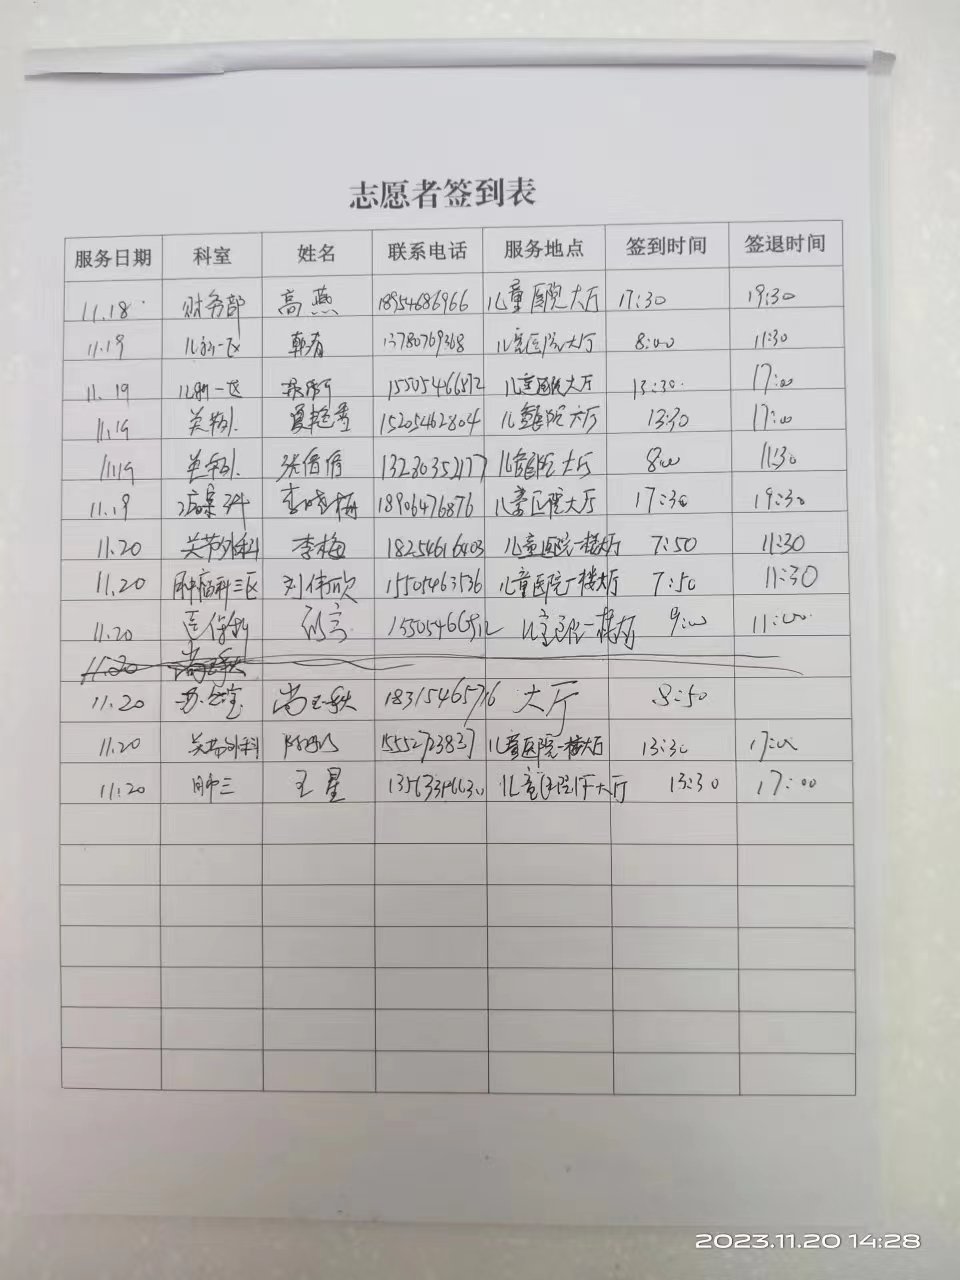 志愿者签到表
服务日期 科室 姓名 联系电话 服务地点 签到时间 签退时间
11.18 财务部 高燕 18954686966 儿童医院大厅 17:30 19:30
11.19 儿科一区 13780769368 儿童医院大厅 8:00 11:30
11.19 一区 15505466812 儿童医院大厅 13:30 17:00
11.19 15205462804 儿童医院大厅 13:30 17:00
11.19 张倩倩 儿童医院大厅 8:00 11:30
11.19 李晓梅 18906476876 儿童医院大厅 17:30 19:30
11.20 关节外科 李梅 18254616403 儿童医院一楼大厅 7:50 11:30
11.20 肿瘤科三区 刘伟欣 15505463536 儿童医院一楼大厅 7:50 11:30
11.20 医保科 儿童医院一楼大厅 9:00 11:00
11.20
11.20 办公室 尚玉秋 18315465716 大厅 8:50
11.20 关节外科 15552723837 儿童医院一楼大厅 13:30 17:00
11.20 肿三 王星 儿童医院1F大厅 13:30 17:00
2023.11.20 14:28